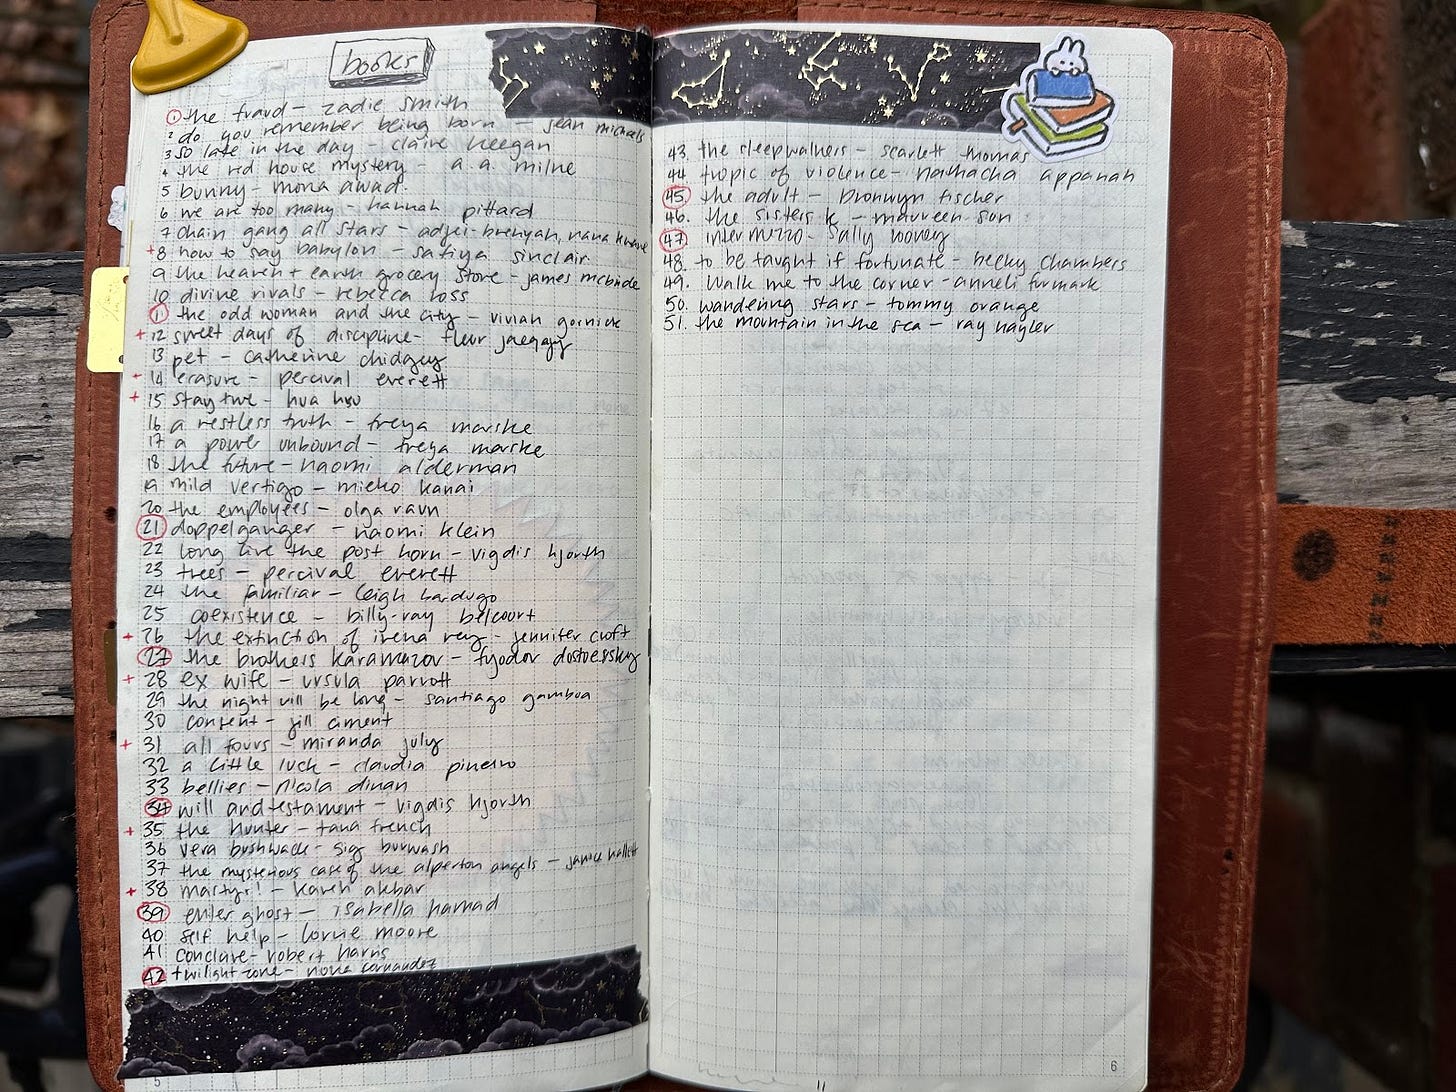 books
1 the fraud - zadie smith
2 do you remember being born - sean michaels
3 so late in the day - claire keegan
4 the red house mystery - a. a. milne
5 bunny - mona awad
6 we are too many - hannah pittard
7 chain gang all stars - adjei-brenyah, nana kwame
+8 how to say babylon - safiya sinclair
9 the heaven + earth grocery store - james mcbride
10 divine rivals - rebecca ross
11 the odd woman and the city - vivian gornick
+12 sweet days of discipline - fleur jaeggy
13 pet - catherine chidgey
+14 erasure - percival everett
+15 stay true - hua hsu
16 a restless truth - freya marske
17 a power unbound - freya marske
18 the future - naomi alderman
19 mild vertigo - mieko kanai
20 the employees - olga ravn
21 doppelganger - naomi klein
22 long live the post horn - vigdis hjorth
23 trees - percival everett
24 the familiar - leigh bardugo
25 coexistence - billy-ray belcourt
+26 the extinction of irena rey - jennifer croft
27 the brothers karamazov - fyodor dostoevsky
+28 ex wife - ursula parrott
29 the night will be long - santiago gamboa
30 consent - jill ciment
+31 all fours - miranda july
32 a little luck - claudia pineiro
33 bellies - nicola dinan
34 will and testament - vigdis hjorth
+35 the hunter - tana french
36 vera bushwack - sig burwash
37 the mysterious case of the alperton angels - janice hallett
+38 martyr! - kaveh akbar
39 enter ghost - isabella hamad
40 self help - lorrie moore
41 conclave - robert harris
42 twilight zone - nona fernandez
5
43. the sleepwalkers - scarlett thomas
44 tropic of violence - nathacha appanah
45. the adult - bronwyn fischer
46. the sisters k - maureen sun
47. intermezzo - sally rooney
48. to be taught if fortunate - becky chambers
49. walk me to the corner - anneli furmark
50. wandering stars - tommy orange
51. the mountain in the sea - ray nayler
6